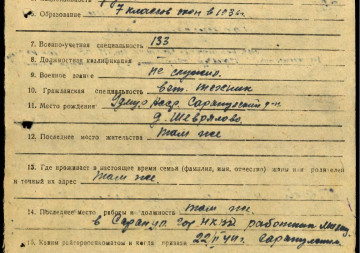 6. Образование 7 классов кон в 193
7. Военно-учетная специальность 133
8. Должностная квалификация
9. Военное звание не служил.
10. Гражданская специальность вет. техник
11. Место рождения Удмур. Сарапульский р-н
д. Шевырялово.
12. Последнее место жительства там же
13. Где проживает в настоящее время семья (фамилия, имя, отчество) жены или родителей
и точный их адрес там же.
14. Последнее место работы и должность там же.
в Сарапул. гор НКВД работник
15. Каким райгорвоенкоматом и число призыва 22 Сарапульским